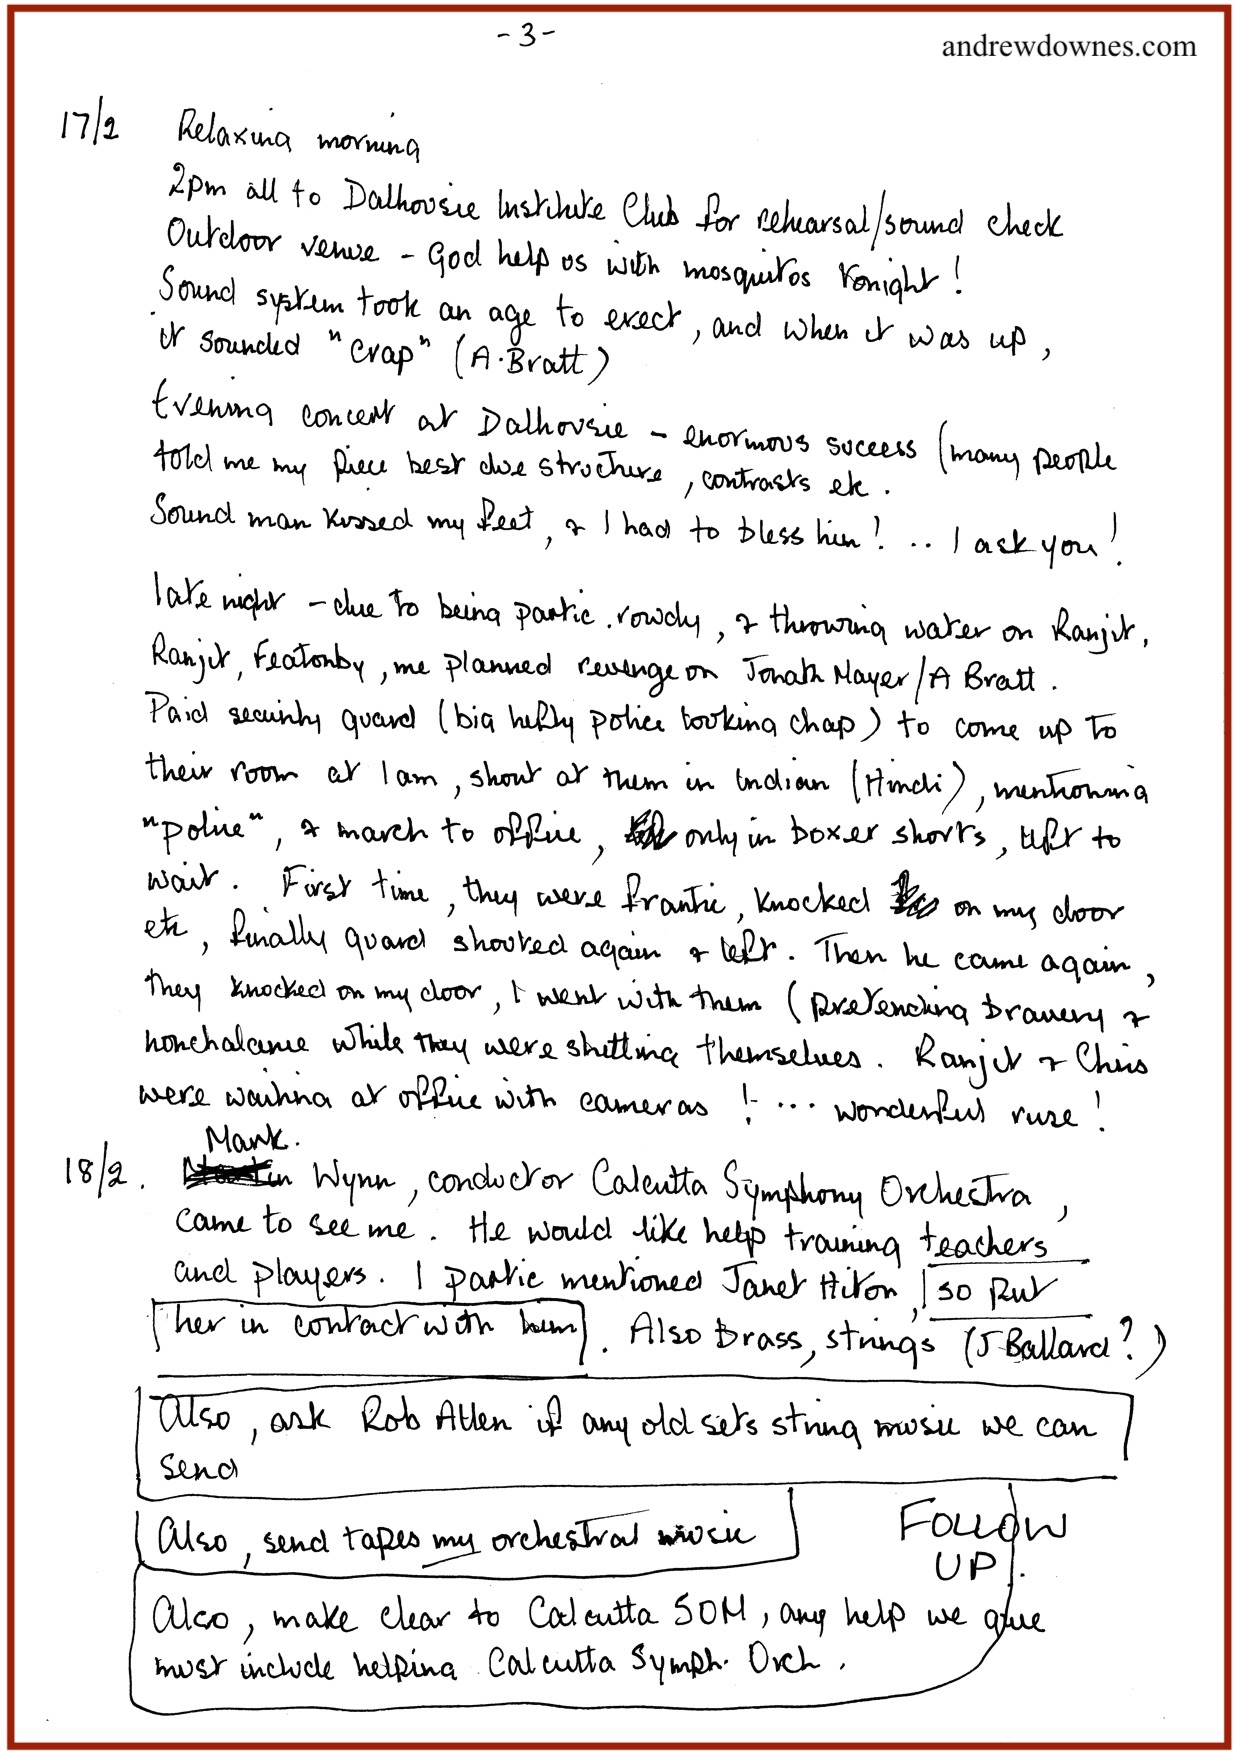 - 3 -
andrewdownes.com
17/2 Relaxing morning
2pm all to Dalhousie Institute Club for rehearsal/sound check
Outdoor venue - God help us with mosquitos tonight!
Sound system took an age to erect, and when it was up,
it sounded "crap" (A. Bratt)
Evening concert at Dalhousie - enormous success (many people
told me my piece best due structure, contrasts etc.
Sound man kissed my feet, & I had to bless him! .. I ask you!
late night - due to being partic. rowdy, & throwing water on Ranjit,
Ranjit, Featonby, me planned revenge on Jonath Mayer/A Bratt.
Paid security guard (big hefty police looking chap) to come up to
their room at 1am, shout at them in Indian (Hindi), mentioning
"police", & march to office, only in boxer shorts, left to
wait. First time, they were frantic, knocked on my door
etc, finally guard shouted again & left. Then he came again,
they knocked on my door, I went with them (pretending bravery &
nonchalance while they were shitting themselves. Ranjit & Chris
were waiting at office with cameras ! ... wonderful ruse!
Mark.
18/2. Wynn, conductor Calcutta Symphony Orchestra,
came to see me. He would like help training teachers
and players. I partic mentioned Janet Hilton, so put
her in contact with him. Also brass, strings (J Ballard?)
Also, ask Rob Allen if any old sets string music we can
send
Also, send tapes my orchestral music
FOLLOW
UP.
Also, make clear to Calcutta SOM, any help we give
must include helping Calcutta Symph. Orch.